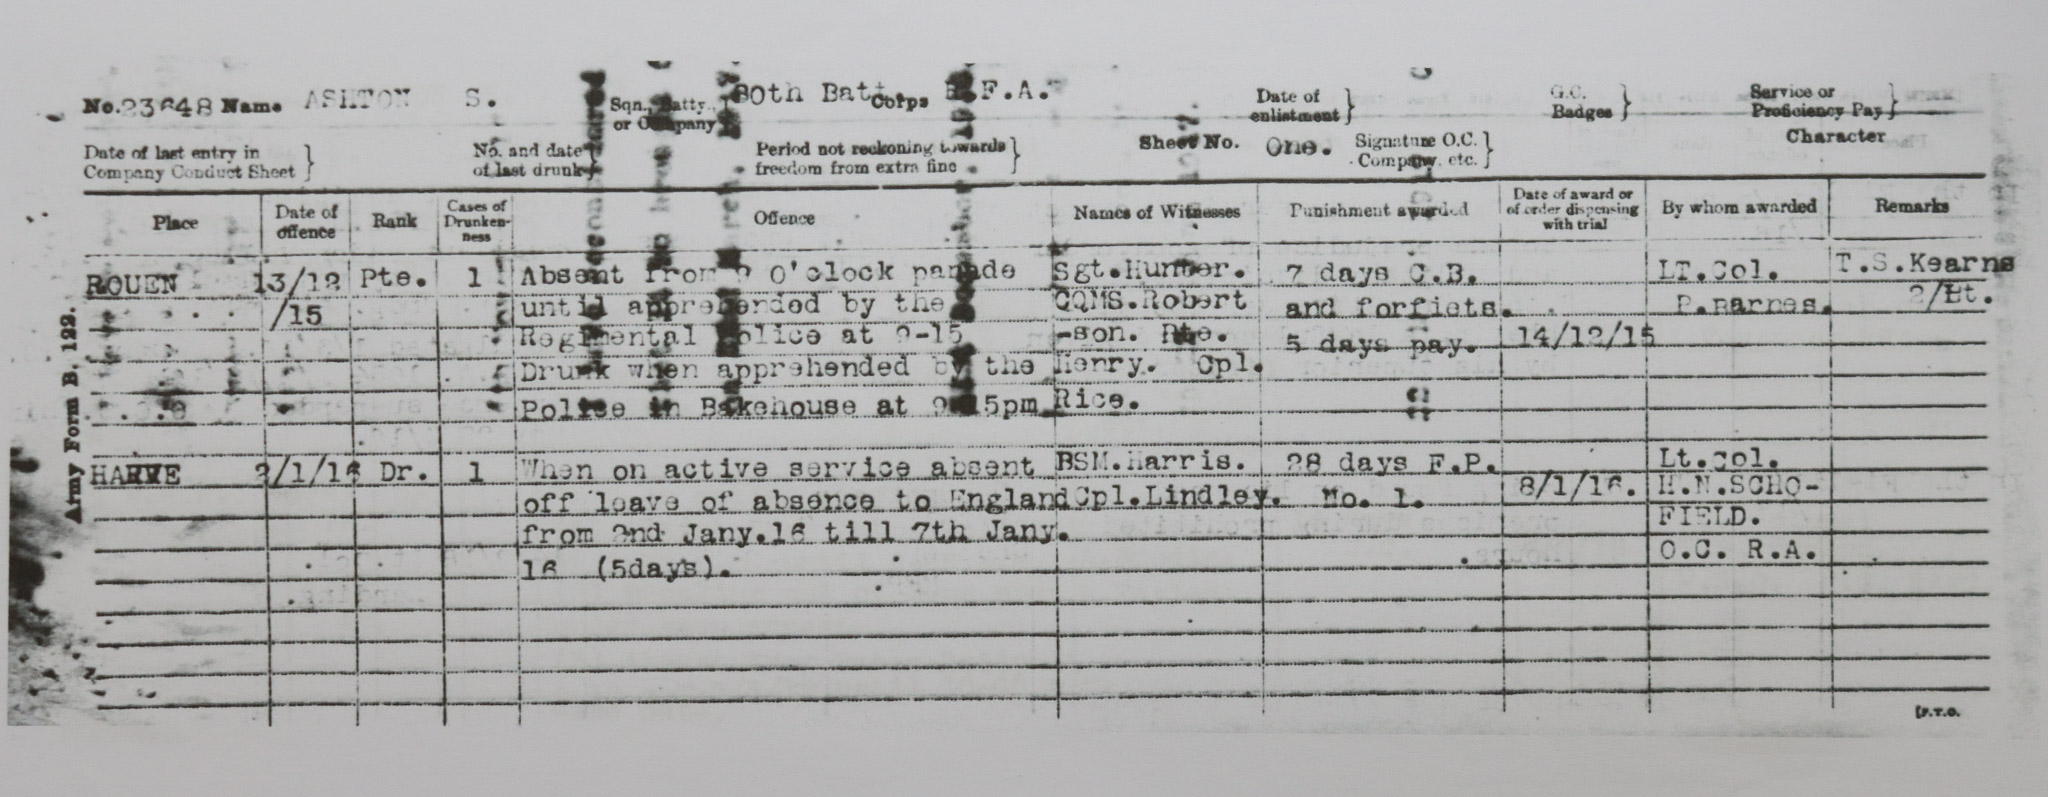 No. 23648 Name ASHTON S. Sqn., Batty., or Company 80th Batt. Corps R.F.A. Date of enlistment G.C. Badges Service or Proficiency Pay
Date of last entry in Company Conduct Sheet No. and date of last drunk Period not reckoning towards freedom from extra fine Sheet No. One. Signature O.C. Company, etc. Character
Place Date of offence Rank Cases of Drunkenness Offence Names of Witnesses Punishment awarded Date of award or of order dispensing with trial By whom awarded Remarks
ROUEN 13/12 Pte. 1 Absent from O'clock parade Sgt.Hunter. 7 days C.B. LT.Col. T.S.Kearns
/15 until apprehended by the CQMS.Robert and forfiets. P.Barnes. 2/Lt.
Regimental Police at 9-15 -son. Pte. 5 days pay. 14/12/15
Drunk when apprehended by the Henry. Cpl.
Police in Bakehouse at 9 15pm Rice.
HARVE 2/1/16 Dr. 1 When on active service absent BSM.Harris. 28 days F.P. Lt.Col.
off leave of absence to England Cpl.Lindley. No. 1. 8/1/16. H.N.SCHO-
from 2nd Jany.16 till 7th Jany. FIELD.
16 (5days). O.C. R.A.
Army Form B. 122.
[P.T.O.